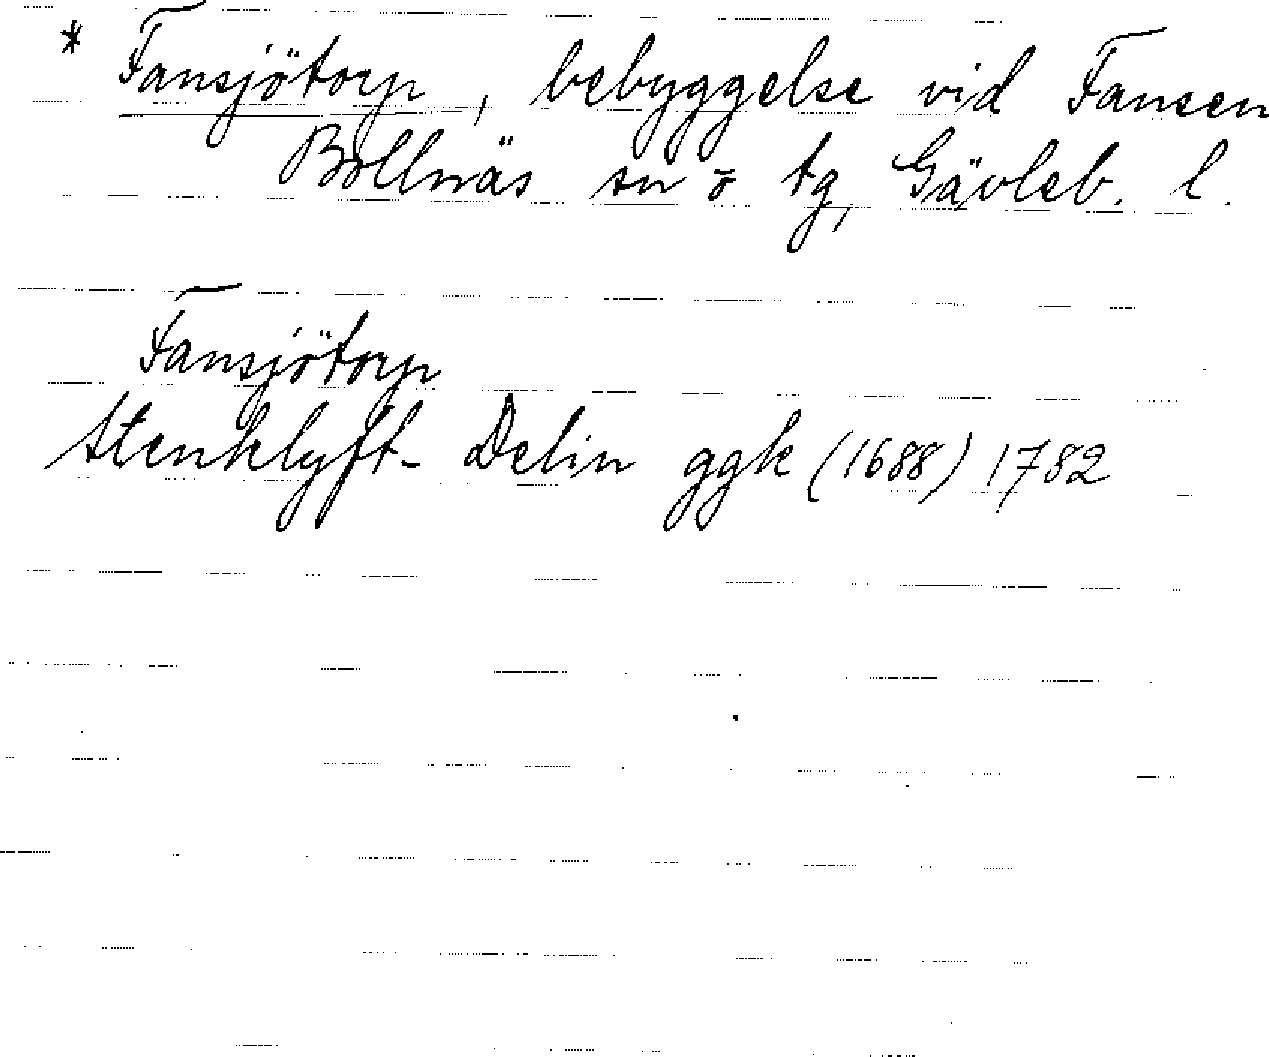 * Fansjötorp, bebyggelse vid Fansen
Bollnäs sn o tg, Gävleb. l.
Fansjötorp
Stenklyft- Delin ggk (1688) 1782